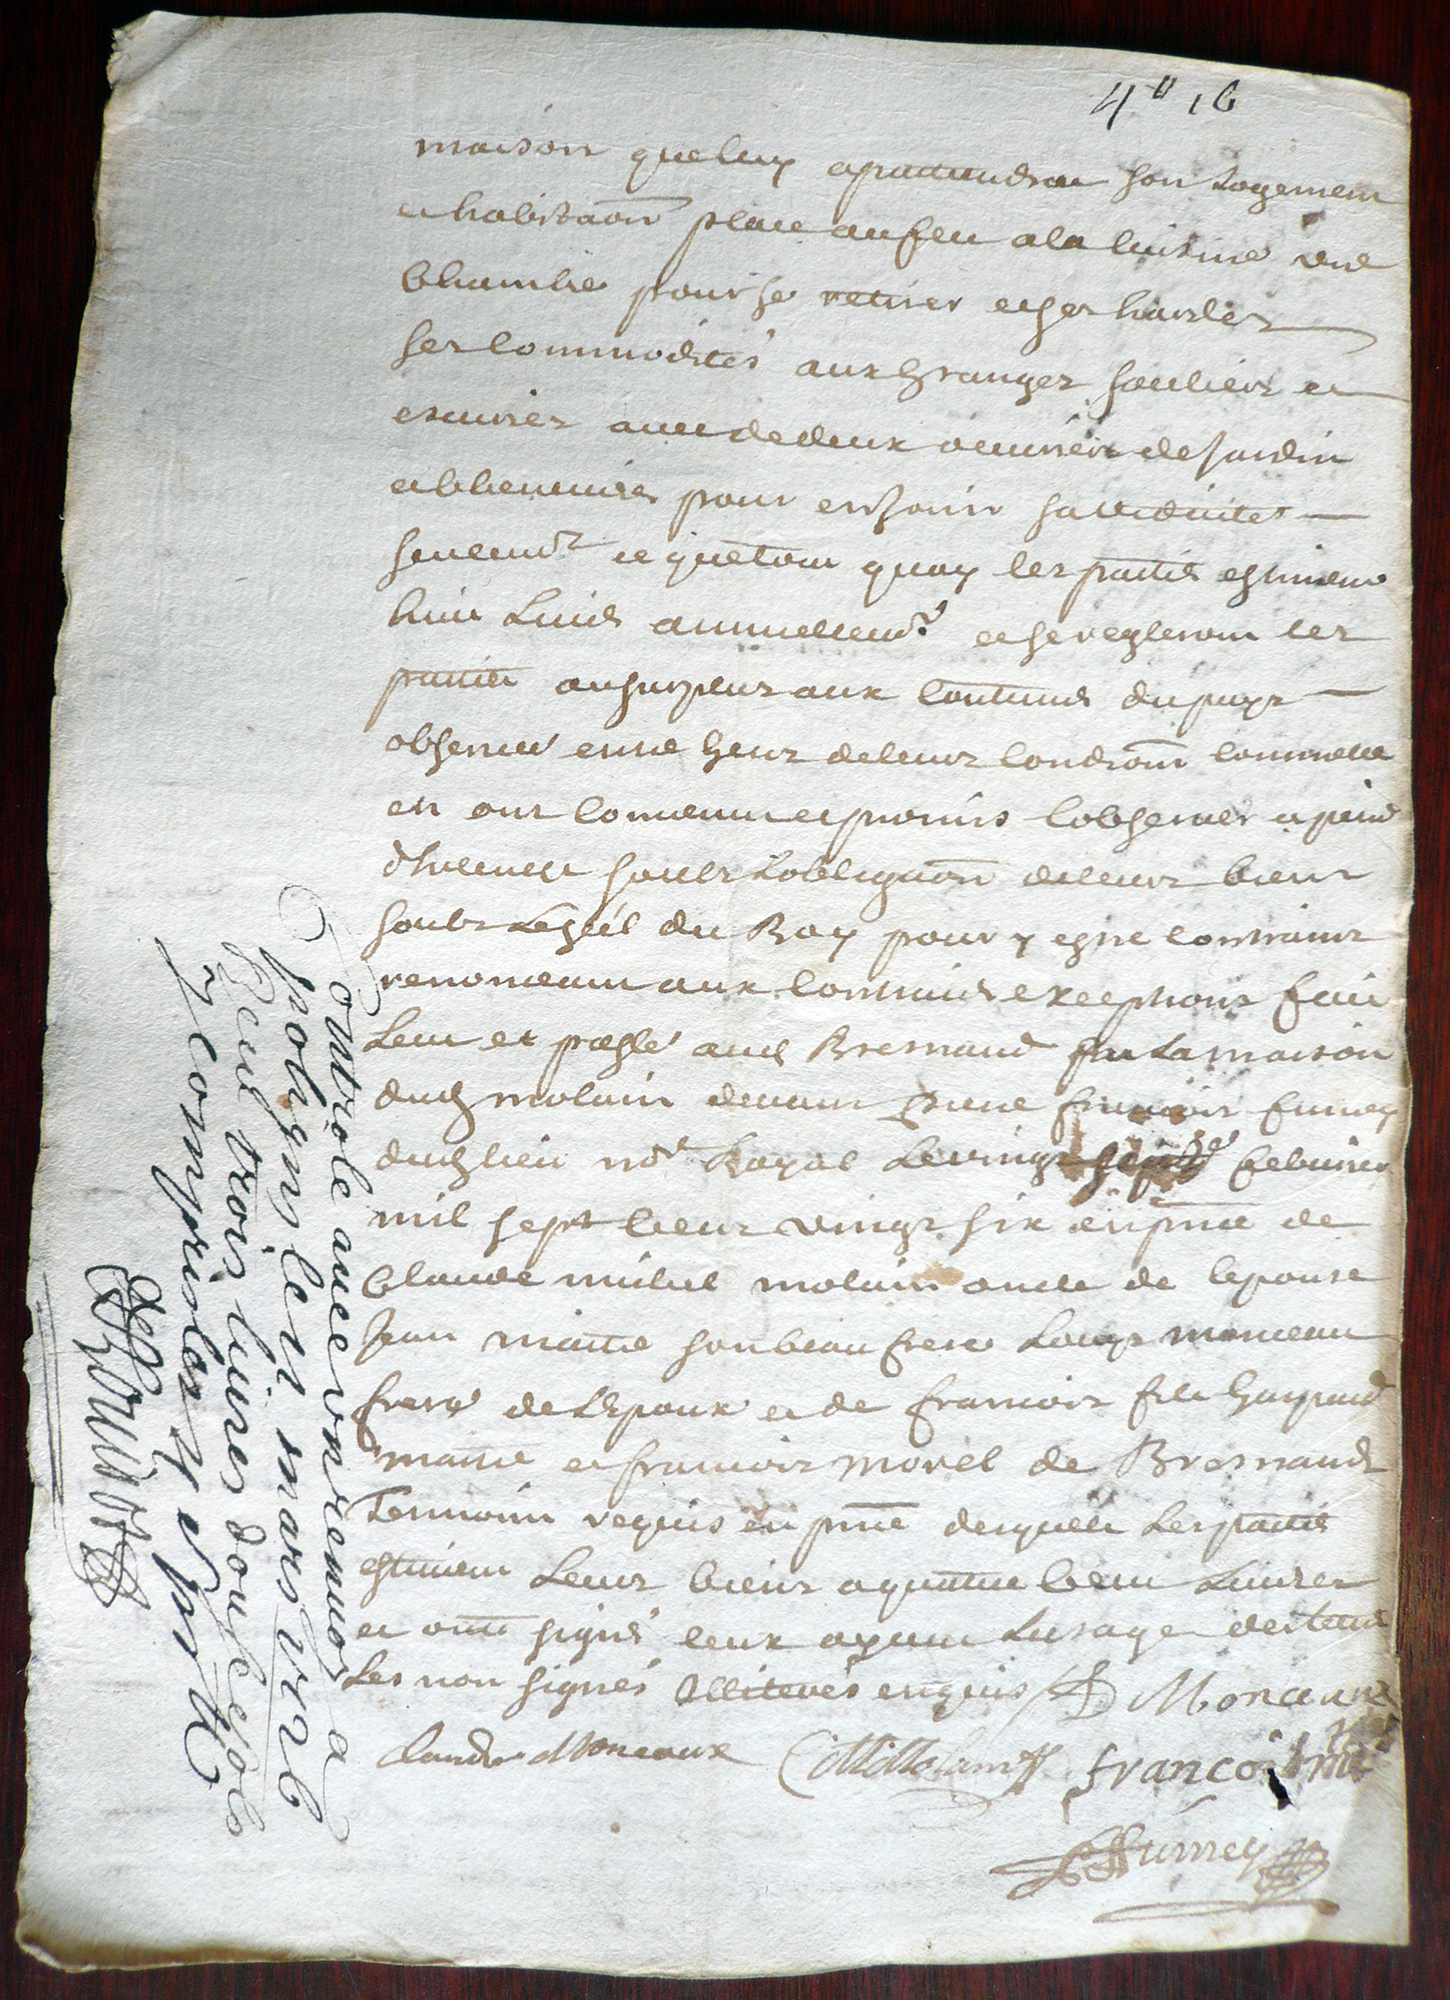 4" 16
maison que luy apartiendra son Logement
et habitaon place au feu a la cuisine une
Chambre pour se retirer et ses hardes
ses Commodites aux Granges soulier et
escuries avec de deux de Jardin
et cheneviere pour en Jouir sa viduité
seulemt ce que tout quoy les parties estiment
huit Livres annuellemt et se regleront les
parties au surplus aux Coutumes du pays
observées entre Gens de leur Condition comme
en ont Convenu et promis Lobserver a peine
soubs Lobligaon de leurs biens
soubs Le seel du Roy pour y estre Contrains
renonceant aux Contraires exceptions fait
Leu et passé aud Bresnand en La maison
dud molain devant Pierre francois fumey
dud lieu nore Royal Le vingt sept febvrier
mil sept cent vingt six en pnce de
Claude michel molain oncle de lepouse
Jean maitre son beau frere Louys monceau
frere de Lepoux et de francois feu Gaspard
maitre et francois morel de Bresnand
Temoins requis en pnce desquels Les parties
estiment Leurs biens a quatre cent Livres
et ont signé ceux ayant Lusage des Lettres
Les non signés Illiterés enquis / LD Monceaux
Claude Monceaux CMMolain francois
PFFumey
Controle avec un renvoy a
poligny le 11 mars 1726
Receu trois livres douse sols
y compris les 4 s pr #